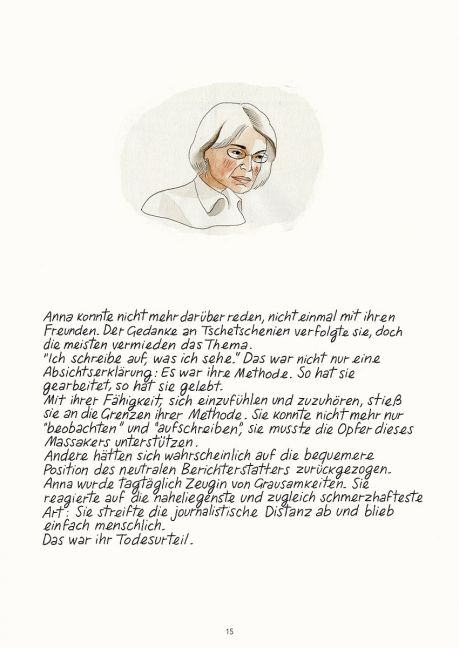 Anna konnte nicht mehr darüber reden, nicht einmal mit ihren
Freunden. Der Gedanke an Tschetschenien verfolgte sie, doch
die meisten vermieden das Thema.
"Ich schreibe auf, was ich sehe." Das war nicht nur eine
Absichtserklärung: Es war ihre Methode. So hat sie
gearbeitet, so hat sie gelebt.
Mit ihrer Fähigkeit, sich einzufühlen und zuzuhören, stieß
sie an die Grenzen ihrer Methode. Sie konnte nicht mehr nur
"beobachten" und "aufschreiben", sie musste die Opfer dieses
Massakers unterstützen.
Andere hätten sich wahrscheinlich auf die bequemere
Position des neutralen Berichterstatters zurückgezogen.
Anna wurde tagtäglich Zeugin von Grausamkeiten. Sie
reagierte auf die naheliegenste und zugleich schmerzhafteste
Art: Sie streifte die journalistische Distanz ab und blieb
einfach menschlich.
Das war ihr Todesurteil.
15